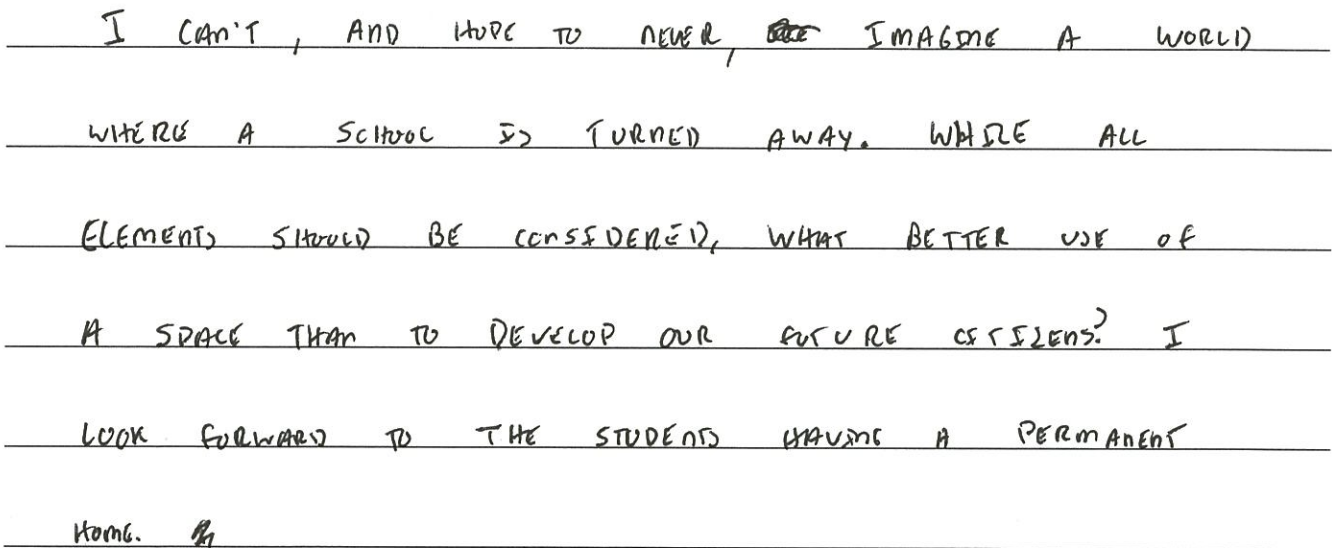 I CAN'T, AND HOPE TO NEVER, IMAGINE A WORLD
WHERE A SCHOOL IS TURNED AWAY. WHILE ALL
ELEMENTS SHOULD BE CONSIDERED, WHAT BETTER USE OF
A SPACE THAN TO DEVELOP OUR FUTURE CITIZENS? I
LOOK FORWARD TO THE STUDENTS HAVING A PERMANENT
HOME.